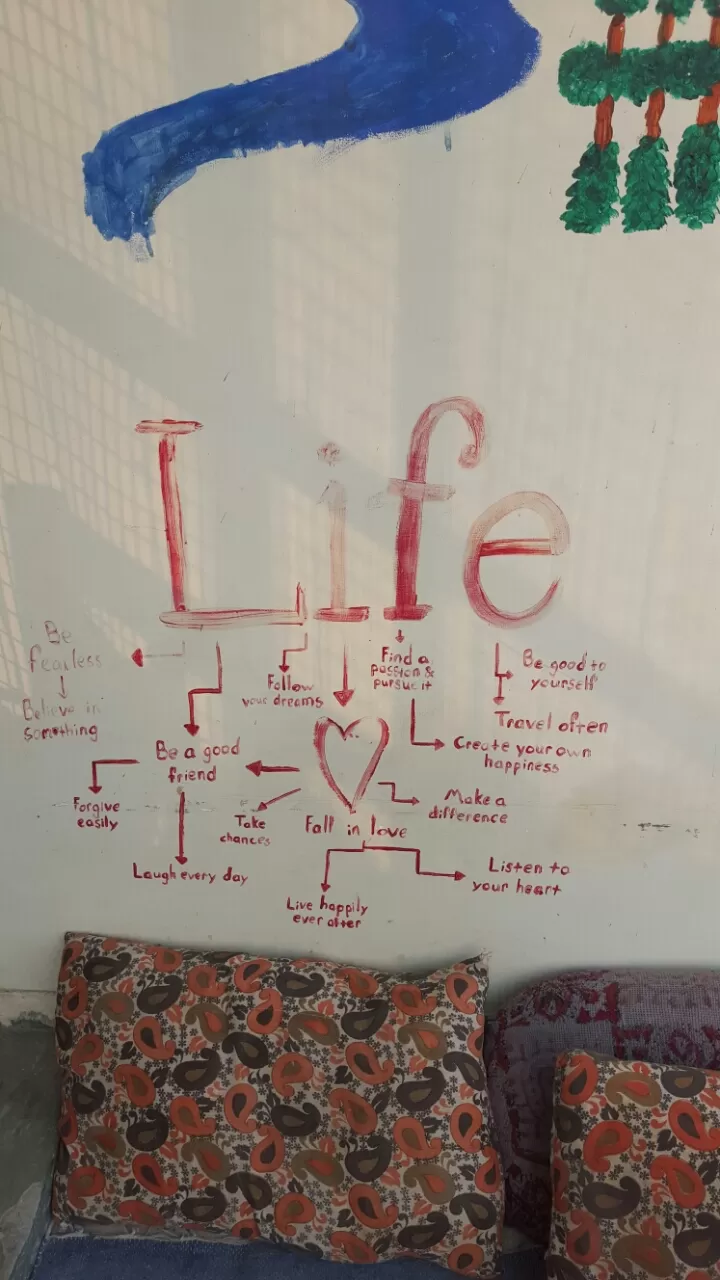 Life
Be
fearless
Believe in
something
Follow
your dreams
Find a
passion &
pursue it
Be good to
yourself
Travel often
Create your own
happiness
Be a good
friend
Forgive
easily
Take
chances
Fall in love
Make a
difference
Laugh every day
Live happily
ever after
Listen to
your heart